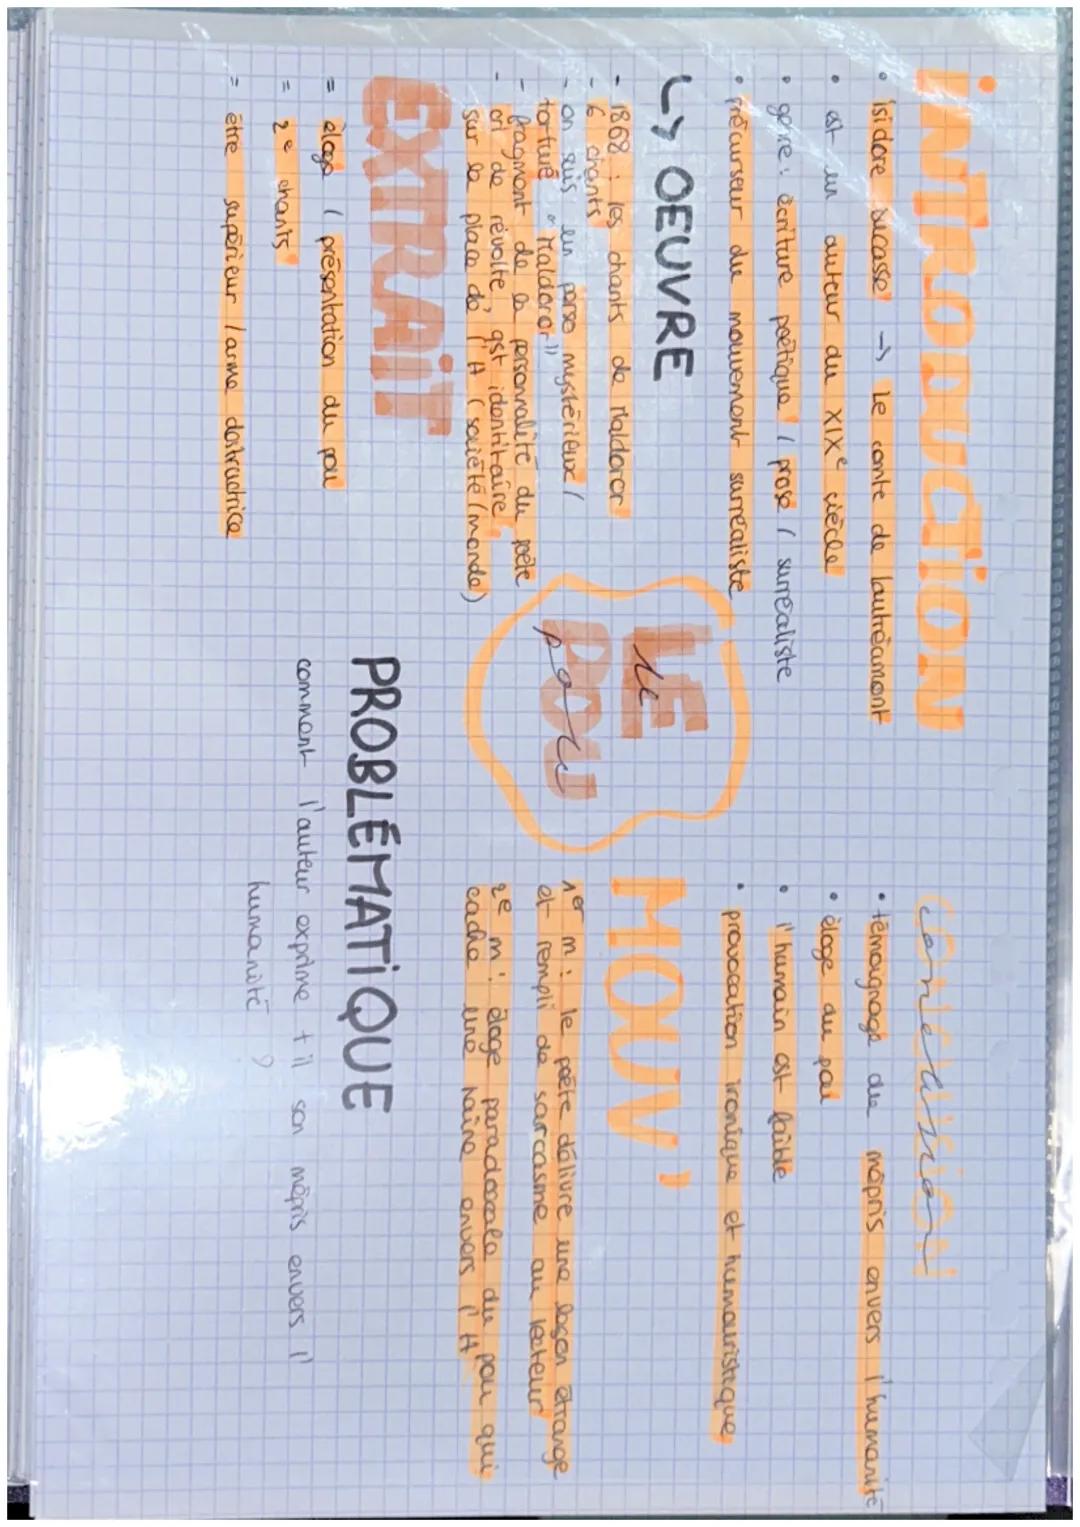 iNTRODUCTiON
• isidore ducasse → le comte de lautréamont
• est un auteur du XIXe siècle
• genre : écriture poétique / prose / surréaliste
• précurseur du mouvement surréaliste
↳ OEUVRE
- 1868 : les chants de Maldoror
- 6 chants
- on suis un perso mystérieux /
torturé "Maldoror"
- fragment de la personnalité du poète
- cri de révolte, qst identitaire,
sur la place de l'H (société/monde)
EXTRAiT
= éloge / présentation du pou
= 2e chants
= être supérieur / arme destructrice
LE
le
POU
pou
CONCLUSION
conclusion
• témoignage du mépris envers l'humanité
• éloge du pou
• l'humain est faible
• provocation ironique et humouristique
MOUV'
1er m : le poète délivre une leçon étrange
et rempli de sarcasme au lecteur
2e m : éloge paradoxale du pou qui
cache une haine envers l'H
PROBLÉMATiQUE
comment l'auteur exprime t il son mépris envers l'
humanité ?